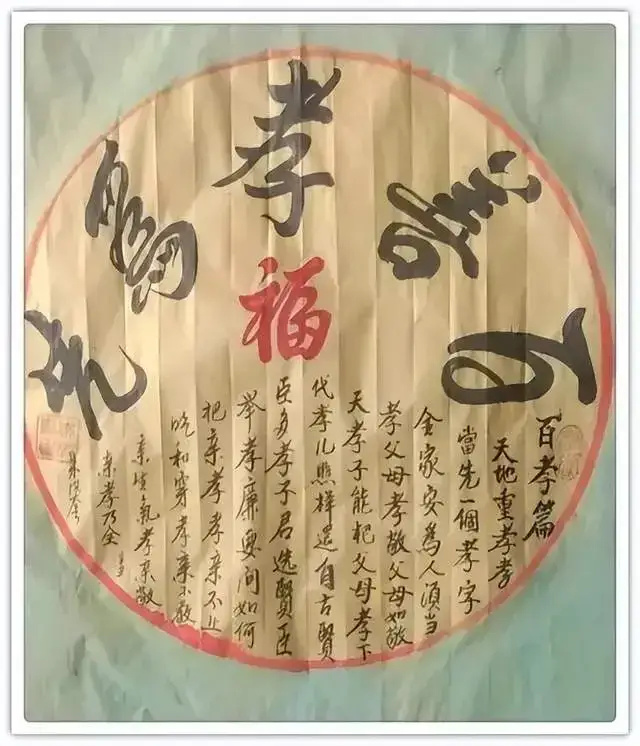 百善孝為先
福
百孝篇
天地重孝孝
當先一個孝字
全家安為人須當
孝父母孝敬父母如敬
天孝子能把父母孝下
代孝儿照樣還自古賢
臣多孝子君選賢臣
舉孝廉要问如何
把亲孝孝亲不止
吃和穿孝亲不教
亲生氣孝亲敬
亲孝乃全